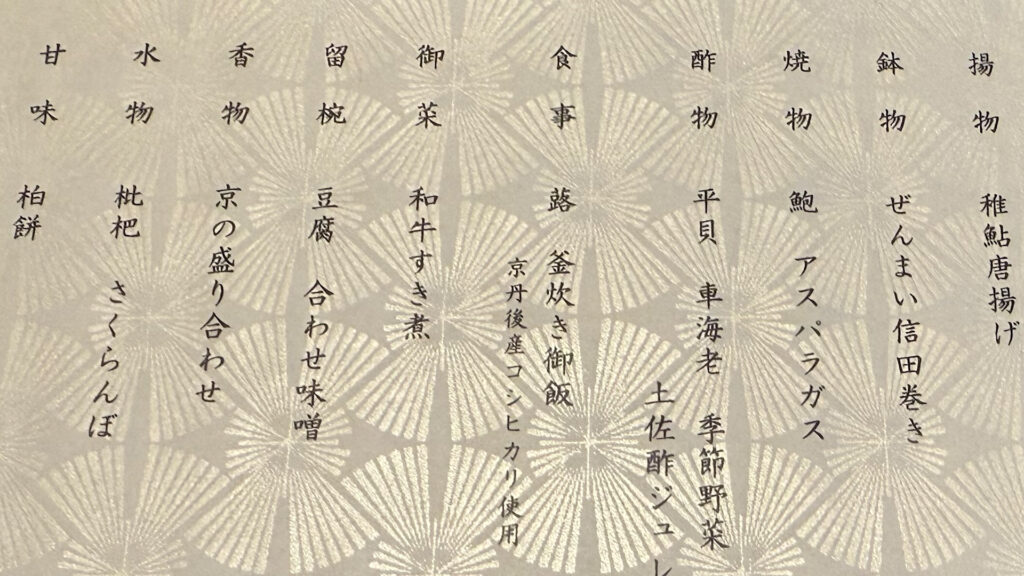 揚物 稚鮎唐揚げ
鉢物 ぜんまい信田巻き
焼物 鮑 アスパラガス
酢物 平貝 車海老 季節野菜
土佐酢ジュレ
食事 蕗 釜炊き御飯
京丹後産コシヒカリ使用
御菜 和牛すき煮
留椀 豆腐 合わせ味噌
香物 京の盛り合わせ
水物 枇杷 さくらんぼ
甘味 柏餅